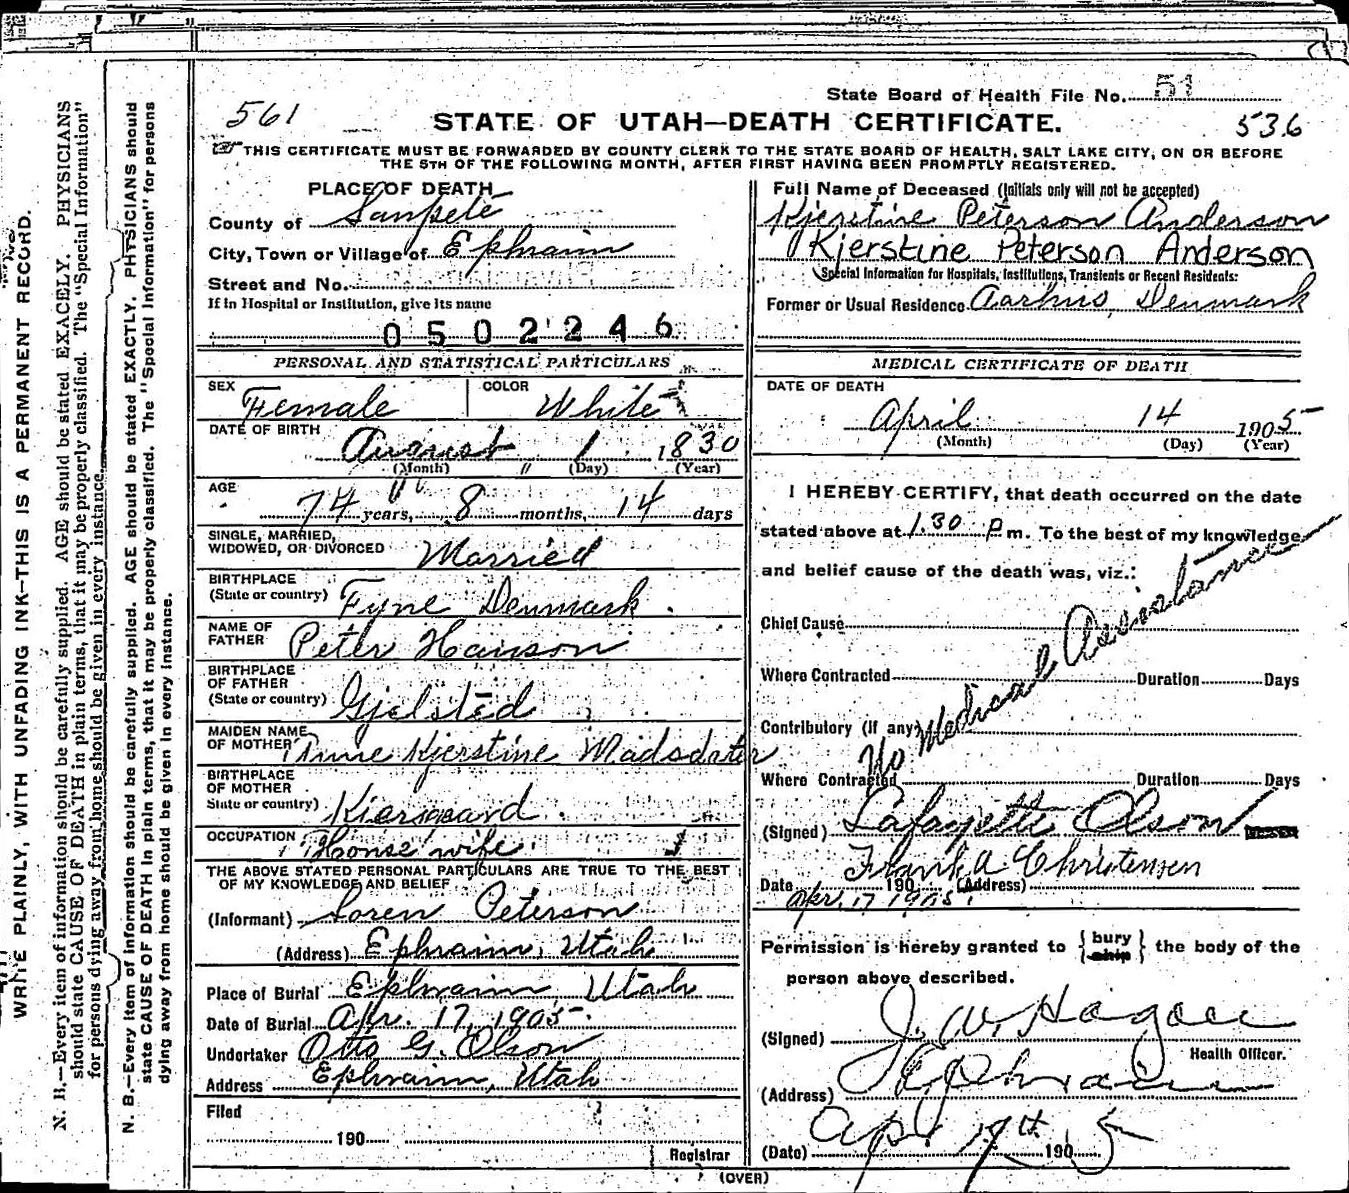 WRITE PLAINLY, WITH UNFADING INK—THIS IS A PERMANENT RECORD.
N. B.—Every item of information should be carefully supplied. AGE should be stated EXACELY. PHYSICIANS
should state CAUSE OF DEATH in plain terms, that it may be properly classified. The "Special Information"
for persons dying away from home should be given in every instance.
N. B.—Every item of information should be carefully supplied. AGE should be stated EXACTLY. PHYSICIANS should
state CAUSE OF DEATH in plain terms, that it may be properly classified. The "Special Information" for persons
dying away from home should be given in every instance.
State Board of Health File No. 51
561
STATE OF UTAH—DEATH CERTIFICATE.
536
THIS CERTIFICATE MUST BE FORWARDED BY COUNTY CLERK TO THE STATE BOARD OF HEALTH, SALT LAKE CITY, ON OR BEFORE
THE 5TH OF THE FOLLOWING MONTH, AFTER FIRST HAVING BEEN PROMPTLY REGISTERED.
PLACE OF DEATH
County of Sanpete
City, Town or Village of Ephraim
Street and No.
If in Hospital or Institution, give its name
0502246
PERSONAL AND STATISTICAL PARTICULARS
SEX Female COLOR White
DATE OF BIRTH August 1 1830
(Month) (Day) (Year)
AGE 74 years, 8 months, 14 days
SINGLE, MARRIED,
WIDOWED, OR DIVORCED Married
BIRTHPLACE
(State or country) Fyne Denmark.
NAME OF
FATHER Peter Hanson
BIRTHPLACE
OF FATHER
(State or country) Gjelsted
MAIDEN NAME
OF MOTHER Anne Kjerstine Madsdater
BIRTHPLACE
OF MOTHER
State or country)
OCCUPATION House wife
THE ABOVE STATED PERSONAL PARTICULARS ARE TRUE TO THE BEST
OF MY KNOWLEDGE AND BELIEF
(Informant) Soren Peterson
(Address) Ephraim, Utah
Place of Burial Ephraim, Utah
Date of Burial Apr. 17, 1905.
Undertaker Otto G. Olson
Address Ephraim, Utah
Filed
190
Registrar
Full Name of Deceased (Initials only will not be accepted)
Kjerstine Peterson Anderson
Kjerstine Peterson Anderson
Special Information for Hospitals, Institutions, Transients or Recent Residents:
Former or Usual Residence Aarhus, Denmark
MEDICAL CERTIFICATE OF DEATH
DATE OF DEATH
April 14 1905
(Month) (Day) (Year)
I HEREBY CERTIFY, that death occurred on the date
stated above at 1.30 P m. To the best of my knowledge
and belief cause of the death was, viz.:
No Medical Assistance
Chief Cause
Where Contracted Duration Days
Contributory (If any)
Where Contracted Duration Days
(Signed) Lafayette Olson
Frank A Christensen
Date 190 (Address)
Apr. 17 1905.
Permission is hereby granted to {bury ship} the body of the
person above described.
(Signed) J. W. Hagan
Health Officer.
(Address) Ephraim
(Date) Apr 17th 1905
(OVER)